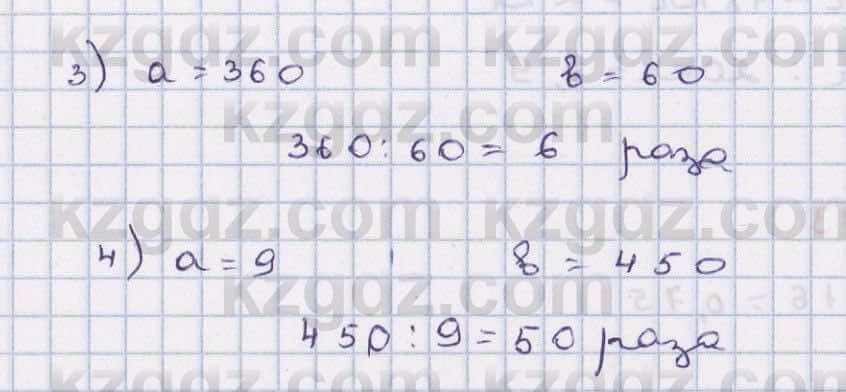 kzgdz.com kzgdz.com
3) a = 360 b = 60
kzgdz.com
360 : 60 = 6 раза
kzgdz.com kzgdz.com
4) a = 9 b = 450
kzgdz.com
450 : 9 = 50 раза
kzgdz.com kzgdz.com